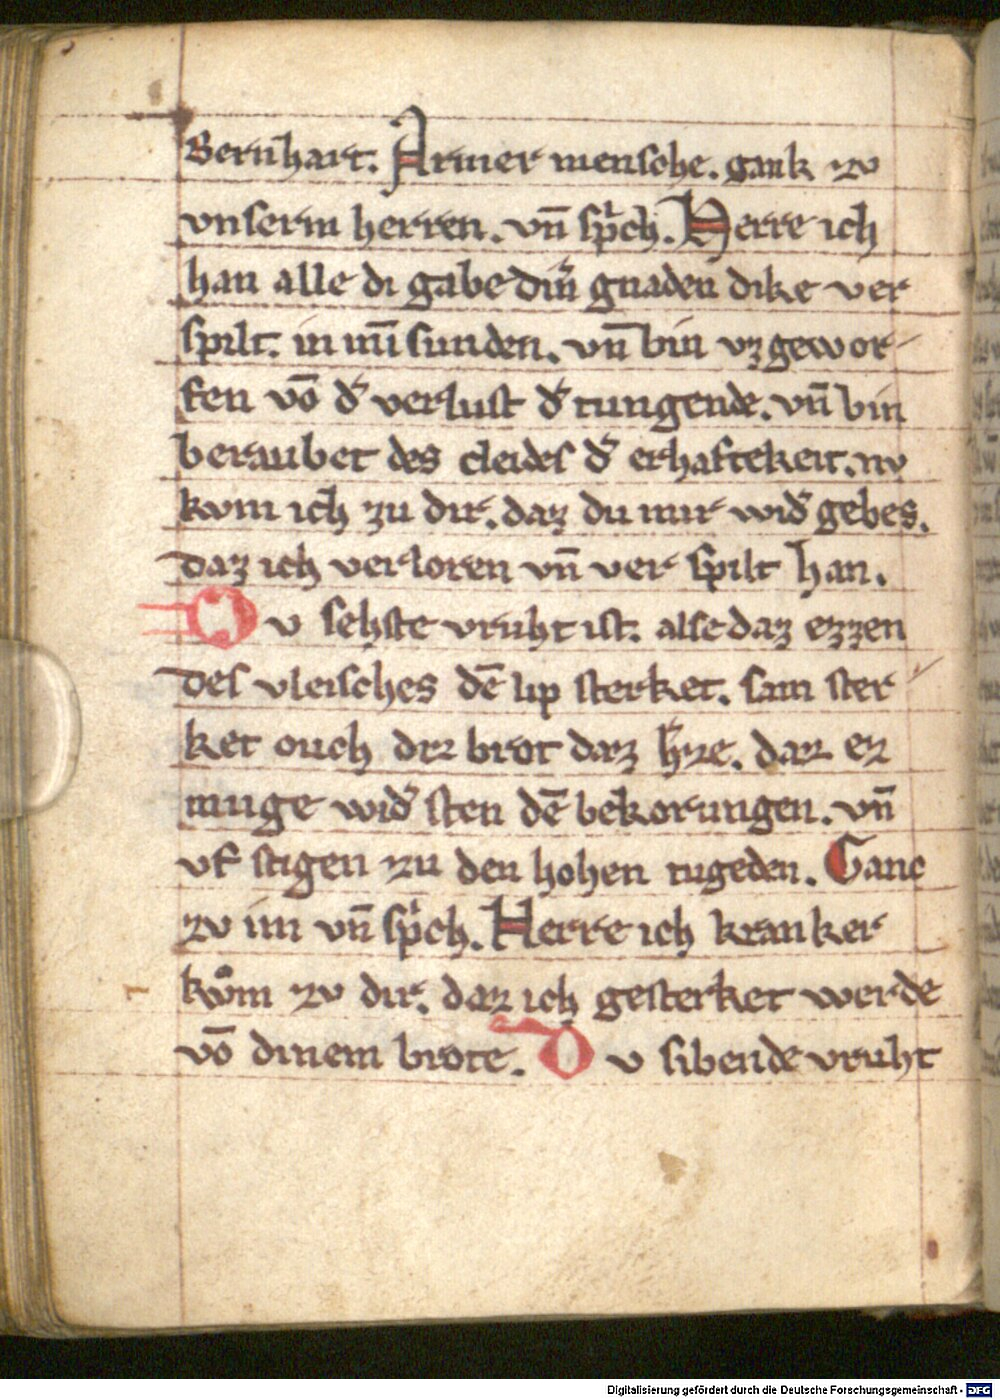 Bernhart. Armer mensche. gank zv
vnserm herren. vn̄ sp̾ch. Herre ich
han alle di gabe din̾ gnaden dike ver
spilt. in mī sunden. vn̄ bin vzgewor-
fen vō d̾ verlust d̾ tungende. vn̄ bin
beraubet des cleides d̾ erhaftekeit. nv
kvm ich zu dir. daz du mir wid̾ gebes.
daz ich verloren vn̄ ver spilt han.
Dv sehste vruht ist. alse daz ezzen
des vleisches dē lip sterket. sam ster
ket ouch diz brot daz h̾ze. daz ez
muge wid̾ sten dē bekorungen. vn̄
vf stigen zu den hohen tugeden. Ganc
zv im vn̄ sp̾ch. Herre ich kranker
kvͦm zv dir. daz ich gesterket werde
vō dinem brote. Dv sibende vruht
Digitalisierung gefördert durch die Deutsche Forschungsgemeinschaft - DFG